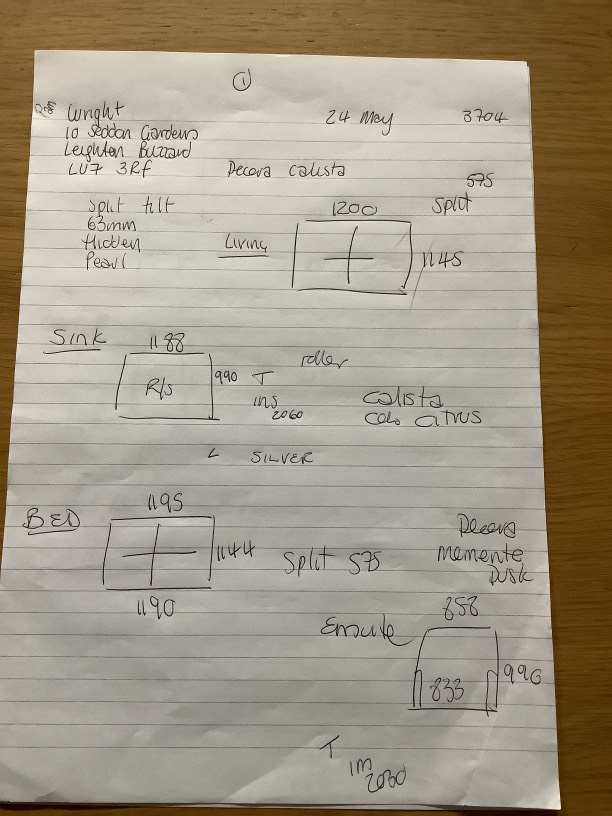 1
Wright 24 May 3704
10 Seddon Gardens
Leighton Buzzard
LU7 3Rf Decora Calista
575
Split tilt 1200 Split
63mm
Hidden Living 1145
Pearl
Sink 1188
roller
R/s 990 T
ins
2060
Calista
Colo CITRUS
L SILVER
BED 1195
1144 Split 575
1190
Decora
Memente
Dusk
Ensuite 858
833 996
T
1m
2030